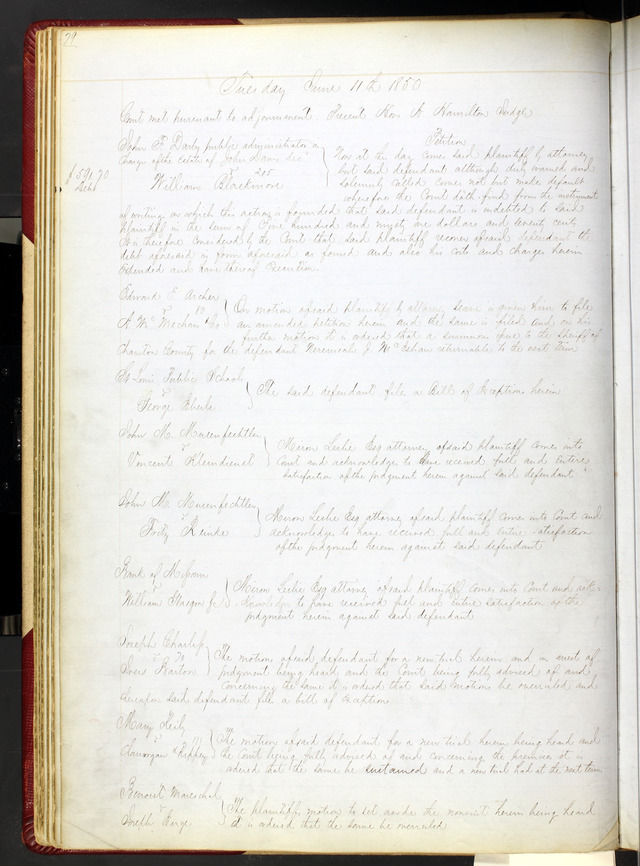 79
Tuesday June 11th 1850
Court met pursuant to adjournment. Present Hon A. Hamilton Judge
John F. Darby public administrator in
charge of the estate of John Davis decd
vs 205
William Blackmore
$591.70
Debt
Petition
Now at this day comes said plaintiff by attorney
but said defendant although duly warned and
solemnly called comes not but makes default
wherefore the Court doth find from the instrument
of writing on which this action is founded that said defendant is indebted to said
plaintiff in the sum of Five hundred and ninety one dollars and seventy cents
It is therefore considered by the Court that said plaintiff recover of said defendant the
debt aforesaid in form aforesaid as found and also his costs and charges herein
expended and have thereof Execution.
Edward E. Archer
vs 10
A Mc Mechan & Co
On motion of said plaintiff by attorney leave is given him to file
an amended petition herein and the same is filed and on his
further motion it is ordered that a summons issue to the Sheriff of
Chariton County for the defendant J. returnable to the next term
St Louis Public Schools
vs
George Eberle
The said defendant file a Bill of Exceptions herein
John M.
vs
Vincent
Miron Leslie Esq attorney of said plaintiff comes into
Court and acknowledges to have received full and entire
satisfaction of the judgment herein against said defendant
John M.
vs
Reinke
Miron Leslie Esq attorney of said plaintiff comes into Court and
acknowledges to have received full and entire satisfaction
of the judgment herein against said defendant
Bank of Missouri
vs
William Glasgow Jr.
Miron Leslie Esq attorney of said plaintiff comes into Court and ack-
nowledges to have received full and entire satisfaction of the
judgment herein against said defendant
Joseph Charless
vs
Barton
The motion of said defendant for a new trial herein and in arrest of
judgment being heard and the Court being fully advised of and
concerning the same it is ordered that said motions be overruled and
thereupon said defendant file a bill of Exceptions
Mary
vs
Clamorgan &
The motion of said defendant for a new trial herein being heard and
the Court being fully advised of and concerning the premises it is
ordered that the same be sustained and a new trial had at the next term
Benoist Mareschal
vs
Joseph
The plaintiffs motion to set aside the nonsuit herein being heard
it is ordered that the same be overruled